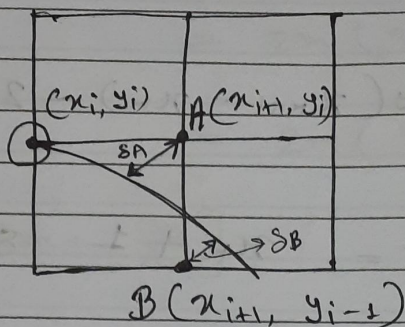 (xᵢ, yᵢ) A(xᵢ₊₁, yᵢ)
δA
δB
B (xᵢ₊₁, yᵢ₋₁)